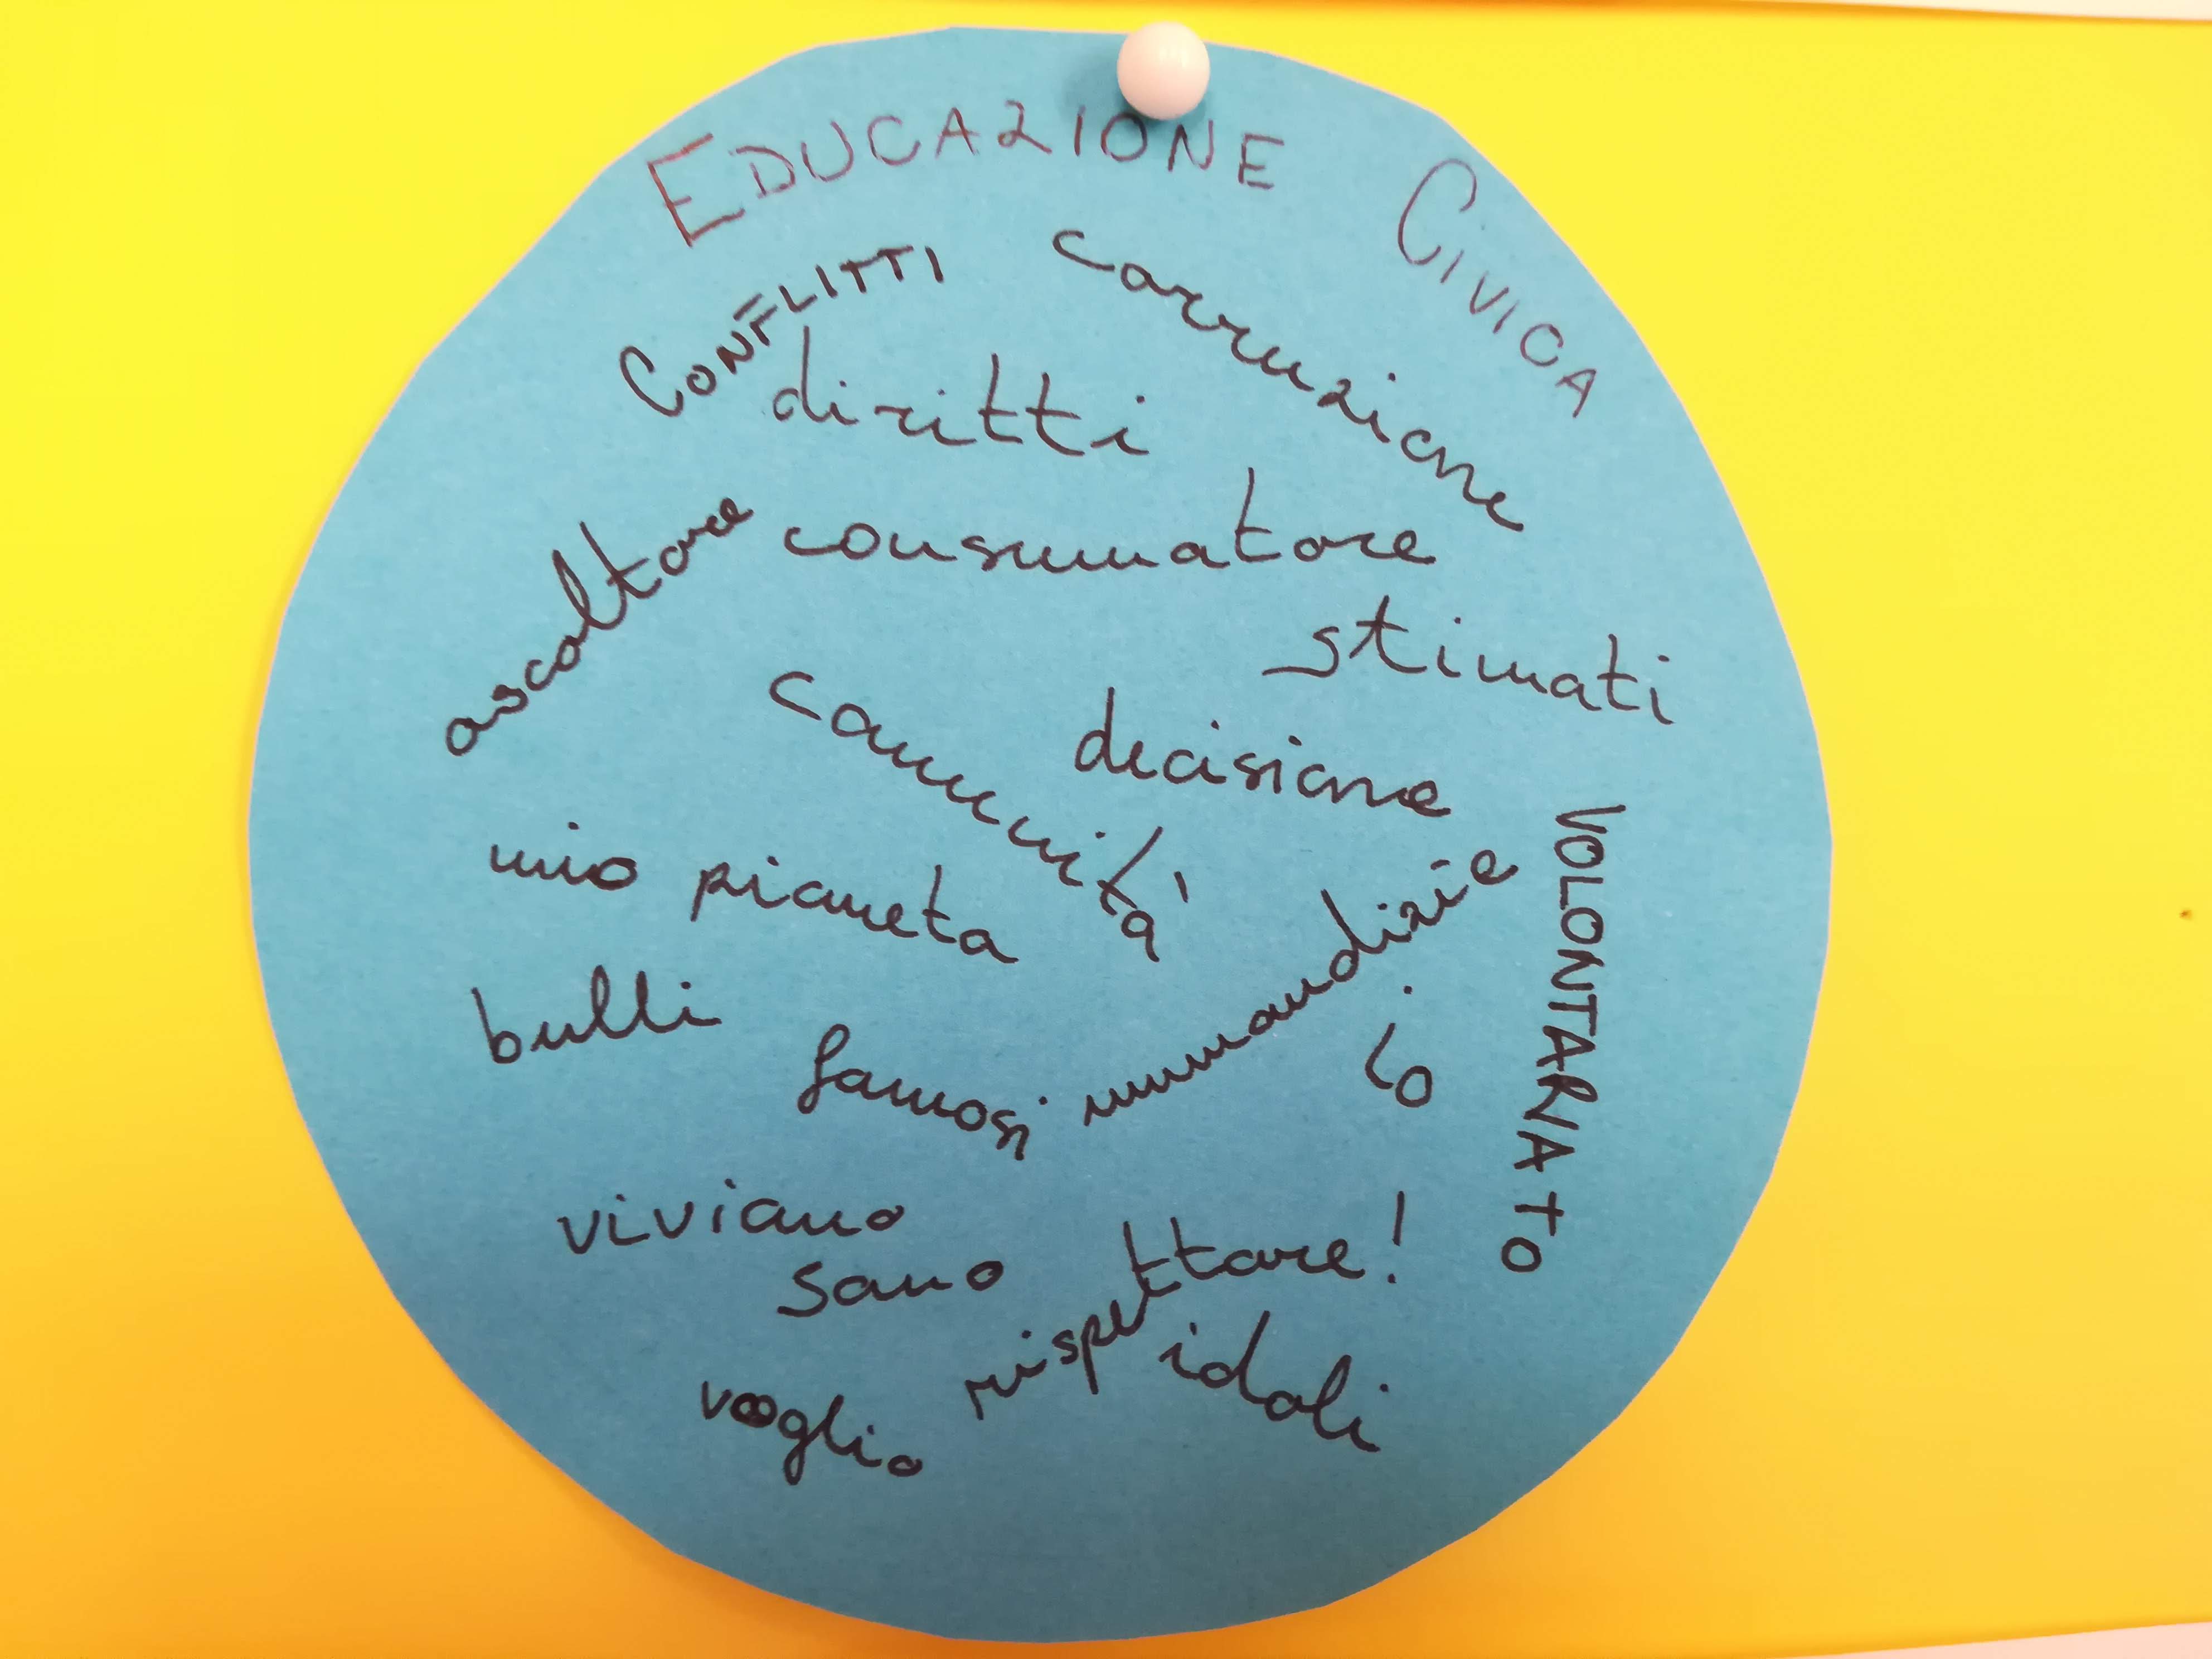 EDUCAZIONE CIVICA
CONFLITTI
corruzione
diritti
ascoltare
consumatore
stimati
comunità
decisione
mio pianeta
immondizie
VOLONTARIATO
bulli
famosi
io
viviamo
sano
rispettare!
idoli
voglio